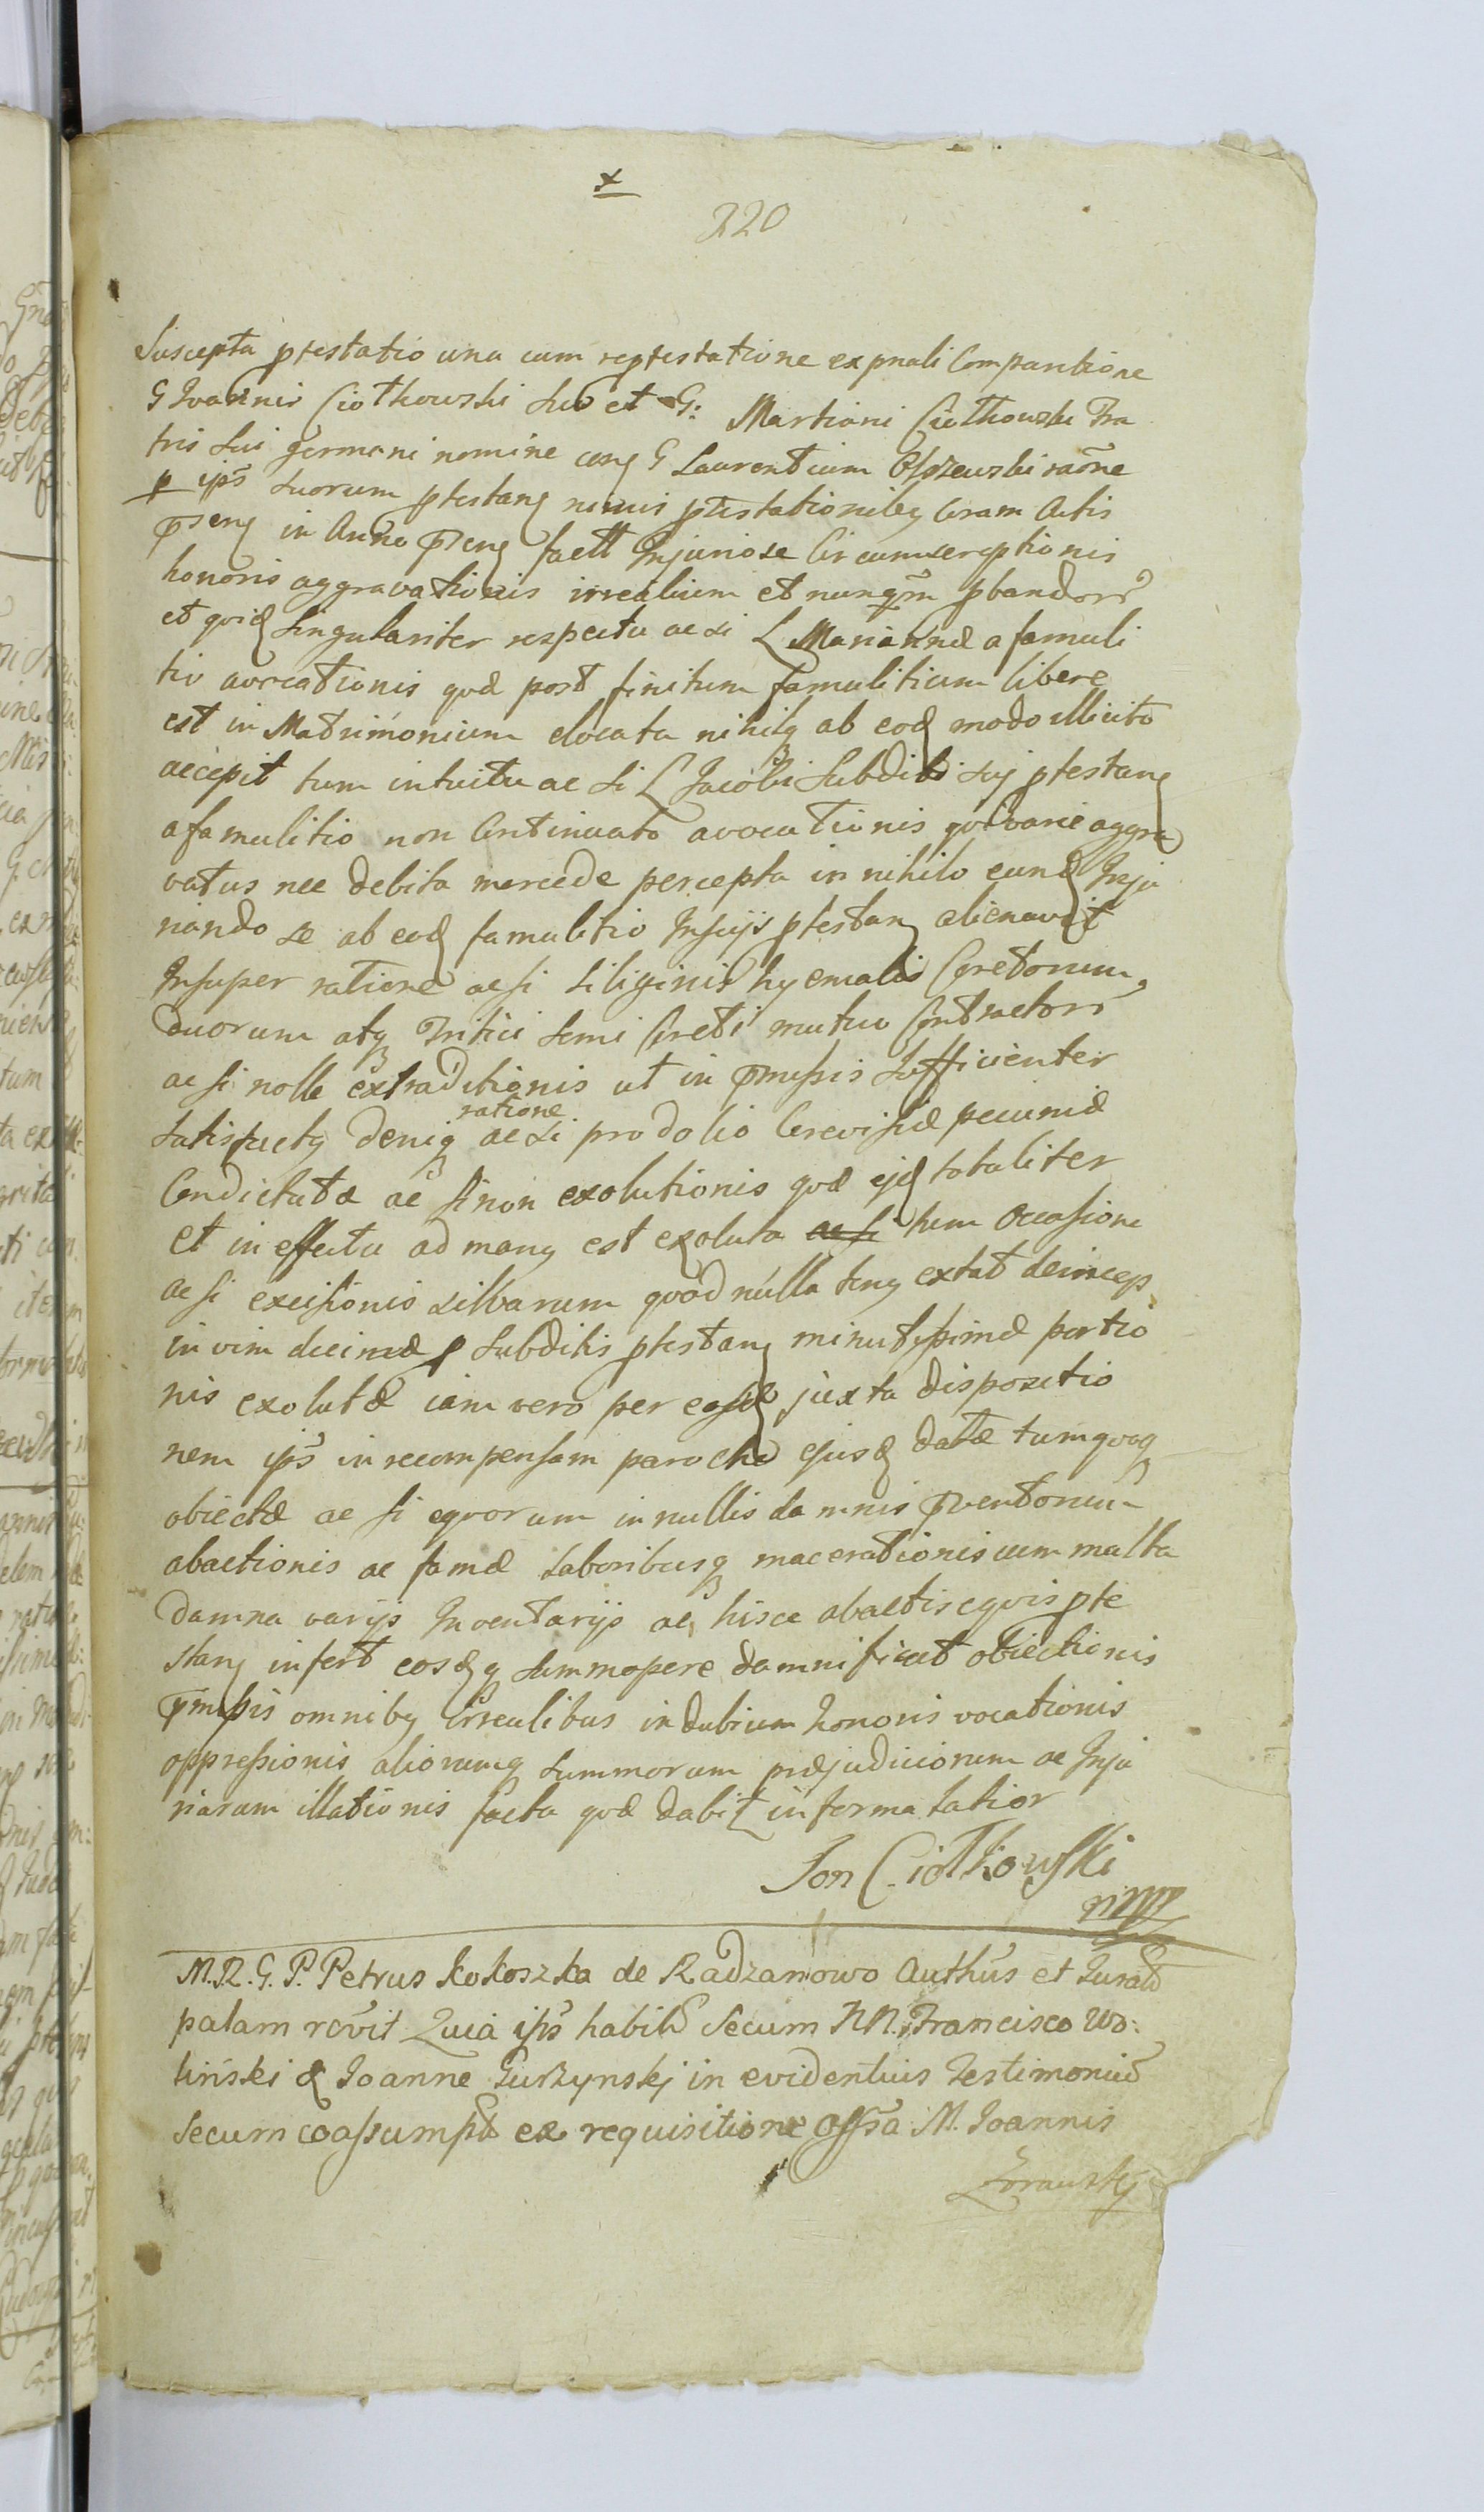 x
220
Suscepta ptestatio una cum reptestatione exprnali Comparitione
G Joannis Ciotkowski suo et G: Martiani Ciotkowski Fra
tris sui germani nomine cong G Laurentium Olszewski raõne
p ips suorum ptestang nimis ptestationibg Coram Actis
Pseng in Anno Pseng factt Injuriose Circumscriptionis
honoris aggravationis irrealium et nunqm pbandorr
et quidg singulariter respectu ac si L Mariannæ a famuli
tio avocationis quæ post finitum famulitium libere
est in Matrimonium elocata nihilq ab eodg modo illicito
accepit tum intuitu ac si L Jacobi Subditi suj ptestang
a famulitio non Continuato avocationis qui varie aggra
vatus nec debita mercede percepta in nihilo eundg Inju
riando se ab eodg famulitio Inscijs ptestang alienavit
Insuper ratione ac si siliginis hyemalis Coretorum
duorum atq Tritici semi Coreti mutuo Contractorr
ac si nolle extraditionis ut in Pmissis sufficienter
satisfactg deniq ratione ac si pro dolio Cerevisiæ pecuniæ
Condictatæ ac si non exolutionis quæ ejdg totaliter
et in effectu ad mang est exoluta ac si tum Occasione
ac si excisionis silvarum quad nulla teng extat deinceps
in vim decimæ p subditis ptestang minutissimæ portio
nis exolutæ iam vero per eosdg juxta dispositio
nem ips in recompensam parochi ejusdg datæ tum quoq
obiectæ ac si equorum in nullis damnis Pventorum
abactionis ac famæ laboribusq macerationis cum multa
damna varijs Inventarijs ac hisce abactis equis pte
stang infert eosdgq summopere damnificat obiectionis
Pmissis omnibg irrealibus in dubium honoris vocationis
oppressionis aliorumq summorum præjudiciorum ac Inju
riarum illationis facta quæ dabit informatior
Jan Ciotkowski
mpp
M.R.G.P. Petrus Kokoszka de Radzanowo Authus et Jurat
palam rcvit Quia ips habit Secum NN. Francisco Wo:
linski & Joanne Gurzynskj in evidentius testimoniu
secum coassumpt ex requisitione Offa M. Joannis
Zorauskj